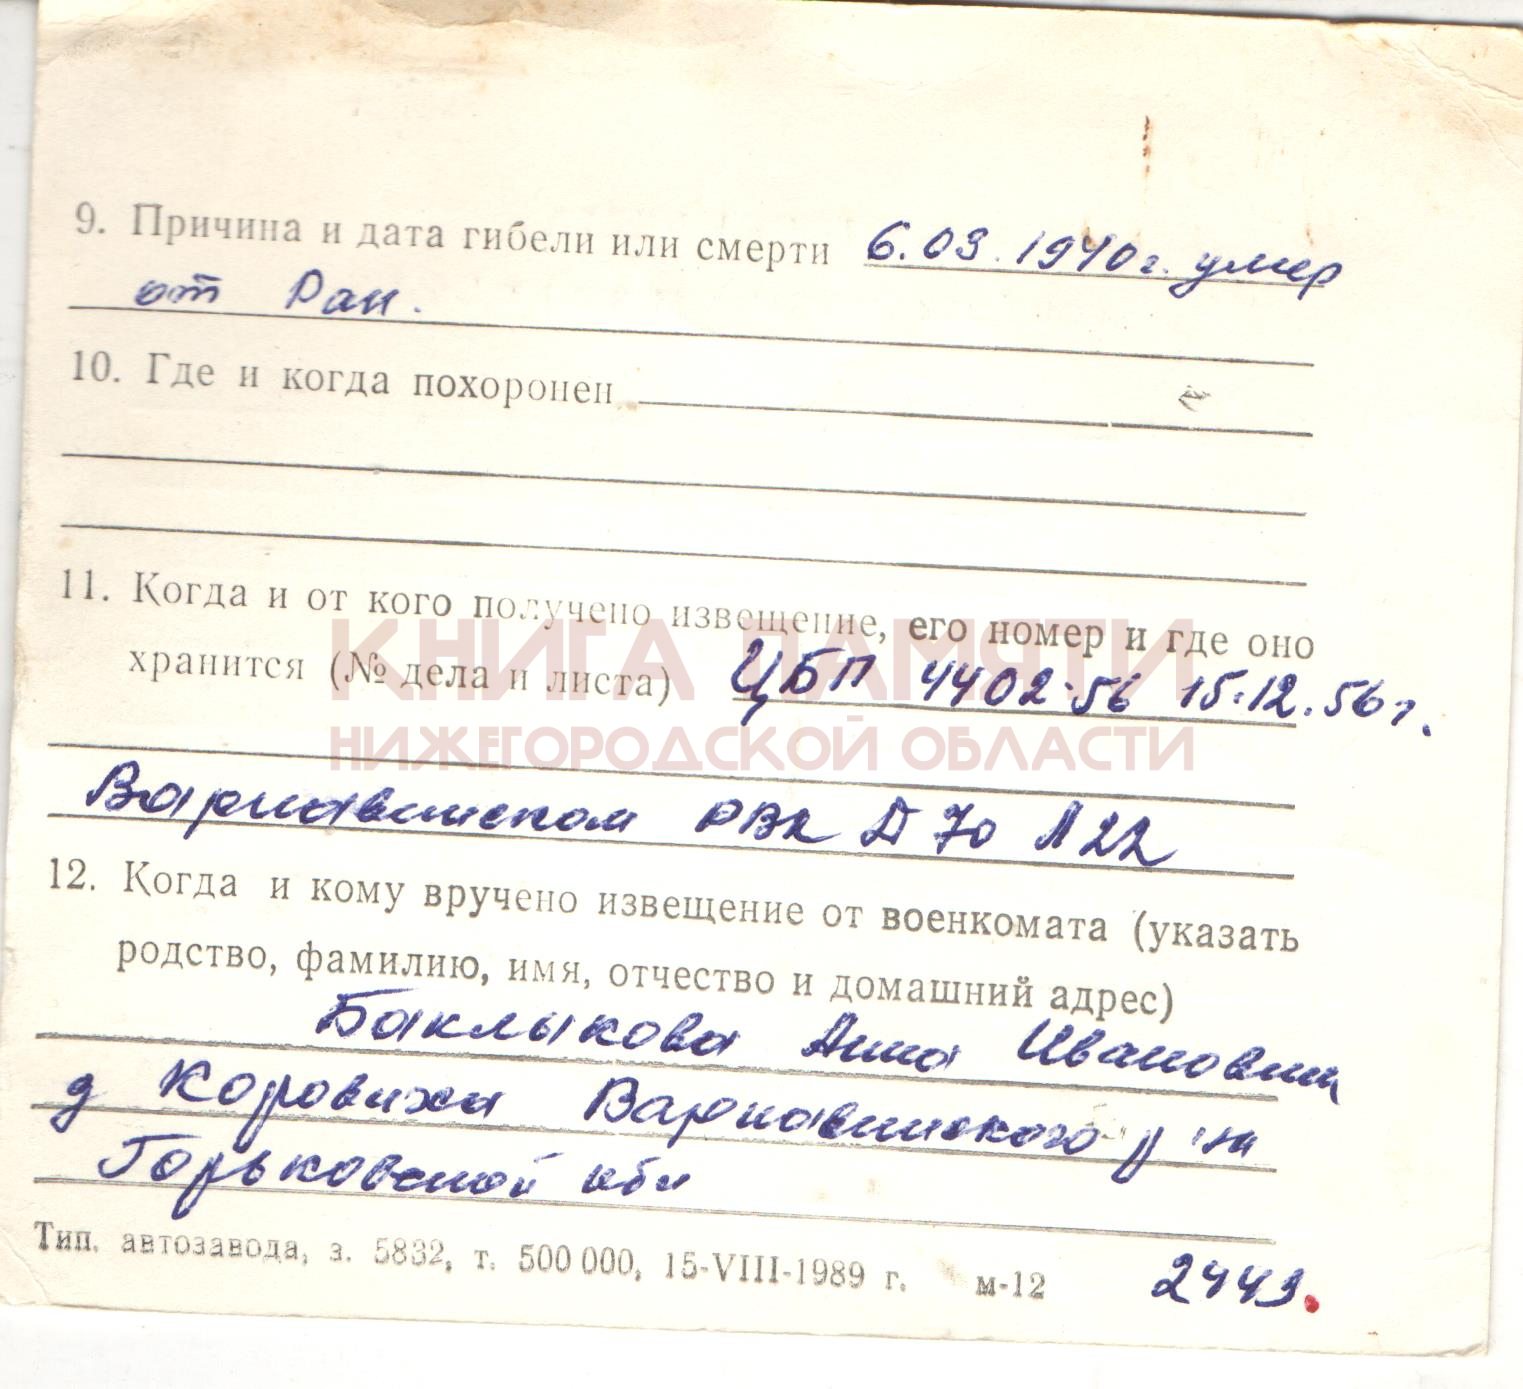 9. Причина и дата гибели или смерти 6.03.1940г. умер
от Ран.
10. Где и когда похоронен
11. Когда и от кого получено извещение, его номер и где оно
хранится (№ дела и листа) ЦБП 4402-56 15.12.56г.
КНИГА ПАМЯТИ
НИЖЕГОРОДСКОЙ ОБЛАСТИ
Варнавинском РВК Д 70 Л 22
12. Когда и кому вручено извещение от военкомата (указать
родство, фамилию, имя, отчество и домашний адрес)
Баклыкова Анна Ивановна
д Коровиха Варнавинского р-на
Горьковской обл
Тип. автозавода, з. 5832, т. 500 000, 15-VIII-1989 г. м-12 2443.